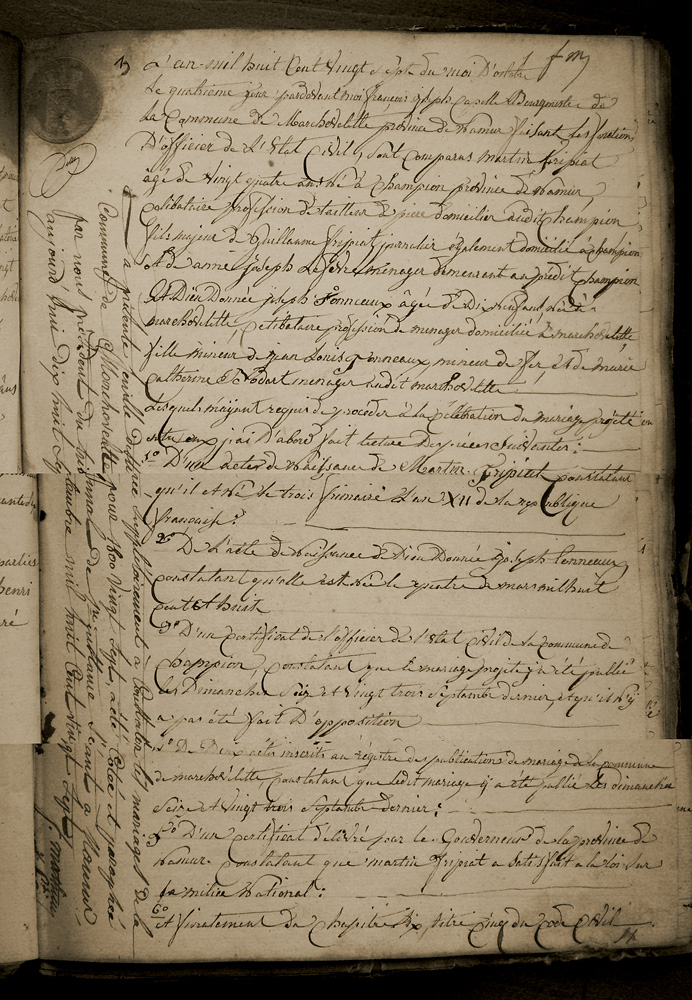 3
L'an mil huit Cent Vingt sept du moi D'octobre
Le quatrième jour pardevant moi françois joseph Capelle Bourgmestre de
La Commune de Marchovelette province de Namur faisant Les fonctions
D'officier de L'Etat Civil, sont Comparus martin fripiat
agé de Vingt quatre ans né à Champion province de Namur,
Celibataire profession de tailleur de piere domicilier audit Champion
fils majeur de Guillaume fripiat journalier également domicilié à Champion
Et de anne joseph Lefevre menager demeurant au prédit Champion
Et Dieu Donnée joseph Tonneaux âgée de Dix neuf ans, Née à
marchovelette, Celibataire profession de menager domiciliée à marchovelette,
fille mineur de jean Louis Tonneaux, mineur de fer, Et de marie
Catherine menager audit marchovelette
Lesquels m'ayant requis de proceder à la Celebration du mariage projeté en
entre eux j'ai D'abord fait lecture Des pieces Suivantes:
1o D'un actes de Naissance de Martin Fripiat constatant
qu'il Est né Le trois frimaire L'an XII de la republique
française.
2o De L'acte de Naissance de Dieu Donnée Joseph Tonneaux
Constatant qu'elle est née le quatre de mars mil huit
Cent Et huit
3o D'un Certificat de L'officier de L'Etat Civil de La Commune de
Champion, Constatant que le mariage projeté y a été publié
Les Dimanches Seize et Vingt trois Septembre dernier, et qu'il N'y
a pas été fait D'opposition
4o De Deux actes inscrits au régistre des publications de mariage de La commune
de marchovelette, Constatant que Ledit mariage y a été publié Les dimanches
Seize et Vingt trois Septembre dernier:
5o D'un Certificat délivré par le Gouverneur de la province de
Namur Constatant que martin Fripiat a Satisfait a la Loi Sur
La milice National:
6o
Et finalement du Chapitre Six, titre Cinq du Code Civil
La présente feuille destinée supplétoirement à Constater les mariages de la
Commune de Marchovelette pour 1800 Vingt Sept, a été Cotée et paraphée
par nous président du tribunal de 1re instance Séant a Namur
aujourd'hui dix huit Septembre mil huit Cent Vingt Sept